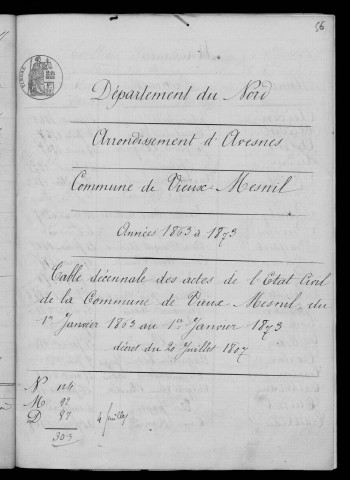 56
TIMBRE
Département du Nord
Arrondissement d'Avesnes
Commune de Vieux-Mesnil
Années 1863 à 1873
Table décennale des actes de l'Etat Civil
de la Commune de Vieux Mesnil, du
1er Janvier 1863 au 1er Janvier 1873
décret du 20 Juillet 1807
N 124
M 92
D 87
303
4 feuilles